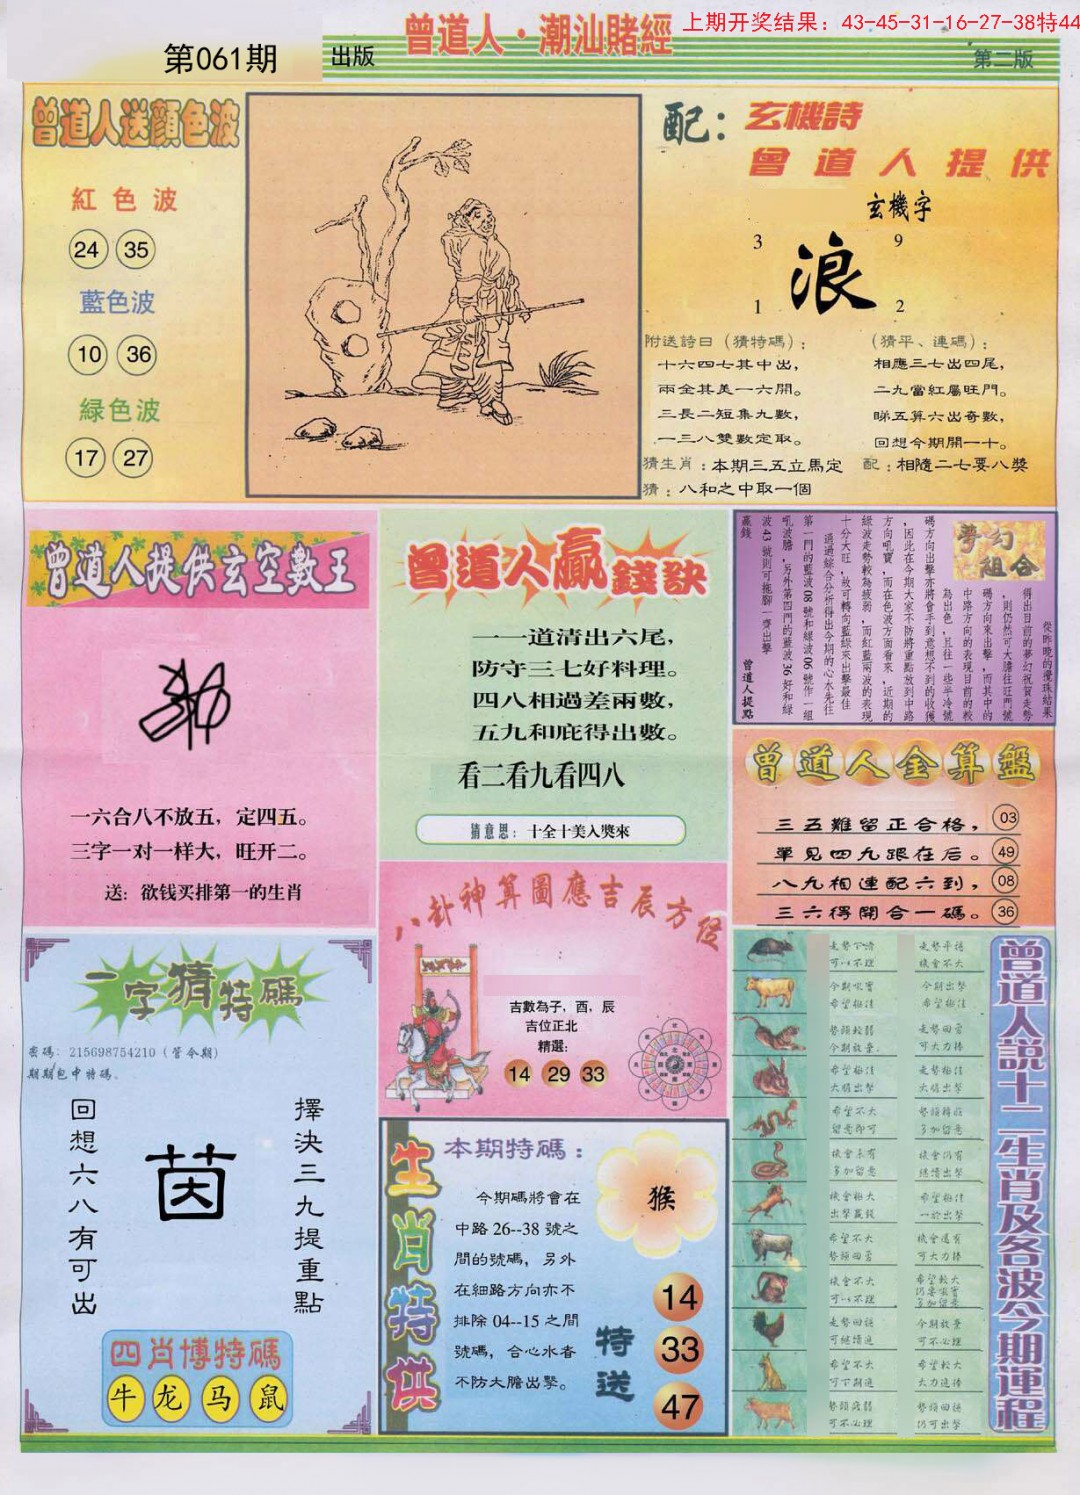 曾道人·潮汕賭經
上期开奖结果：43-45-31-16-27-38特44
第061期
出版
第二版
曾道人送顏色波
紅色波
24 35
藍色波
10 36
緑色波
17 27
配：玄機詩
曾道人提供
玄機字
3 9
浪
1 2
附送詩日（猜特碼）：
十六四七其中出，
兩全其美一六開。
三長二短集九數，
一三八雙數定取。
猜生肖：本期三五立馬定
猜：八和之中取一個
（猜平、連碼）：
相應三七出四尾，
二九當紅屬旺門。
睇五算六出奇數，
回想今期開一十。
配：相隨二七要八獎
曾道人提供玄空數王
一六合八不放五，定四五。
三字一对一样大，旺开二。
送：欲钱买排第一的生肖
曾道人贏錢訣
一一道清出六尾，
防守三七好料理。
四八相過差兩數，
五九和庇得出數。
看二看九看四八
猜意思：十全十美入獎來
夢幻組合
從昨晚的攪珠結果
得出目前的夢幻祝賀走勢
，則仍然可大膽往旺門號
碼方向來出擊，而其中的
中路方向的表現目前的較
為出色，且往一些半冷號
碼方向出擊亦將會手到意想不到的收獲
，因此在今期大家不防將重點放到中路
方向吼寶，而在色波方面看來，近期的
綠波走勢較為疲弱，而紅藍兩波的表現
十分大旺，故可轉向藍綠來出擊最佳
通過綜合分析得出今期的心水先往
第一門的藍波08號和綠波06號作一組
吼波膽，另外第四門的藍波36好和綠
波43號則可拖腳一齊出擊
贏錢
曾道人提點
曾道人金算盤
三五難留正合格， 03
單見四九跟在后。 49
八九相連配六到， 08
三六得開合一碼。 36
八卦神算圖應吉辰方位
吉數為子，酉，辰
吉位正北
精選：
14 29 33
一字猜特碼
密碼：215698754210（管令期）
期期包中特碼。
擇決三九提重點
茵
回想六八有可出
四肖博特碼
牛 龙 马 鼠
生肖特供
本期特碼：
今期碼將會在
中路26--38號之
間的號碼，另外
在細路方向亦不
排除04--15之間
號碼，合心水者
不防大膽出擊。
猴
特送
14
33
47
曾道人説十二生肖及各波今期運程